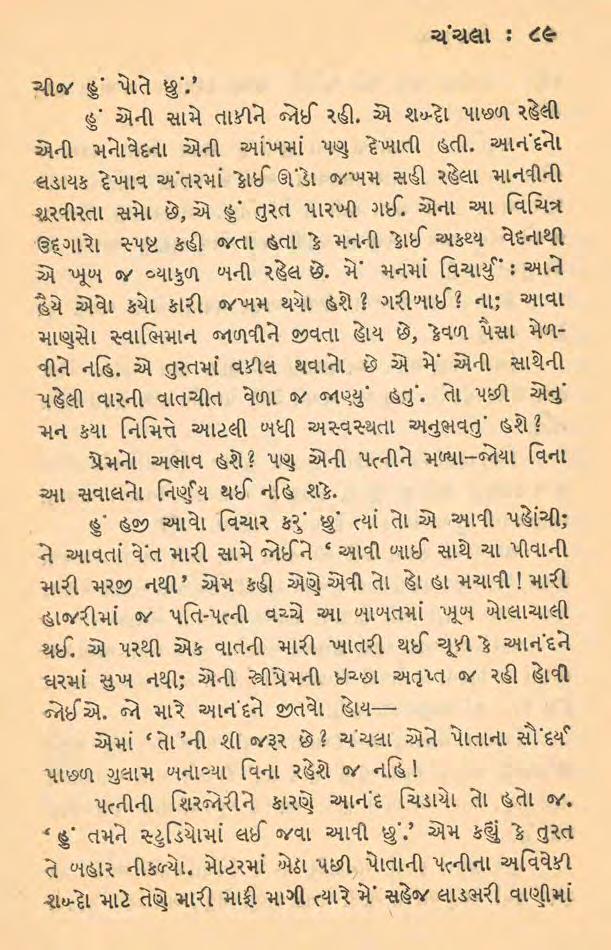 ચંચલા : ૮૯
ચીજ હું પોતે છું.’
હું એની સામે તાકીને જોઈ રહી. એ શબ્દો પાછળ રહેલી
એની મનોવેદના એની આંખમાં પણ દેખાતી હતી. આનંદનો
લડાયક દેખાવ અંતરમાં કોઈ ઊંડો જખમ સહી રહેલા માનવીની
શૂરવીરતા સમો છે, એ હું તુરત પારખી ગઈ. એના આ વિચિત્ર
ઉદ્ગારો સ્પષ્ટ કહી જતા હતા કે મનની કોઈ અકથ્ય વેદનાથી
એ ખૂબ જ વ્યાકુળ બની રહેલ છે. મેં મનમાં વિચાર્યું : આને
હૈયે એવો કયો કારી જખમ થયો હશે? ગરીબાઈ? ના; આવા
માણસો સ્વાભિમાન જાળવીને જીવતા હોય છે, કેવળ પૈસા મેળ-
વીને નહિ. એ તુરતમાં વકીલ થવાનો છે એ મેં એની સાથેની
પહેલી વારની વાતચીત વેળા જ જાણ્યું હતું. તો પછી એનું
મન કયા નિમિત્તે આટલી બધી અસ્વસ્થતા અનુભવતું હશે?
પ્રેમનો અભાવ હશે? પણ એની પત્નીને મળ્યા–જોયા વિના
આ સવાલનો નિર્ણય થઈ નહિ શકે.
હું હજી આવો વિચાર કરું છું ત્યાં તો એ આવી પહોંચી;
ને આવતાં વેંત મારી સામે જોઈને ‘ આવી બાઈ સાથે ચા પીવાની
મારી મરજી નથી’ એમ કહી એણે એવી તો હો હા મચાવી! મારી
હાજરીમાં જ પતિ-પત્ની વચ્ચે આ બાબતમાં ખૂબ બોલાચાલી
થઈ. એ પરથી એક વાતની મારી ખાતરી થઈ ચૂકી કે આનંદને
ઘરમાં સુખ નથી; એની સ્ત્રીપ્રેમની ઇચ્છા અતૃપ્ત જ રહી હોવી
જોઈએ. જો મારે આનંદને જીતવો હોય—
એમાં ‘તો’ની શી જરૂર છે? ચંચલા એને પોતાના સૌંદર્ય
પાછળ ગુલામ બનાવ્યા વિના રહેશે જ નહિ!
પત્નીની શિરજોરીને કારણે આનંદ ચિડાયો તો હતો જ.
‘ હું તમને સ્ટુડિયોમાં લઈ જવા આવી છું.’ એમ કહ્યું કે તુરત
તે બહાર નીકળ્યો. મોટરમાં બેઠા પછી પોતાની પત્નીના અવિવેકી
શબ્દો માટે તેણે મારી માફી માગી ત્યારે મેં સહેજ લાડભરી વાણીમાં